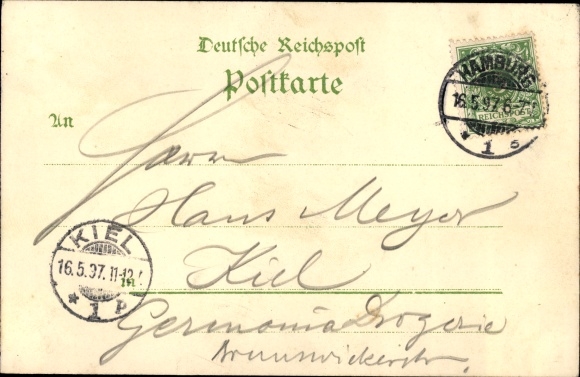 Deutsche Reichspost
Postkarte
HAMBURG
16.5.97. 6-7
* 1 s
REICHSPOST
An
Herrn
Hans Meyer
KIEL
16.5.97. 11-12
* 1 P
in
Kiel
Germania Drogerie
Brunswickerstr.